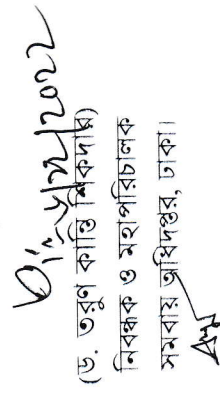 (ড. তরুণ কান্তি শিকদার)
নিবন্ধক ও মহাপরিচালক
সমবায় অধিদপ্তর, ঢাকা।